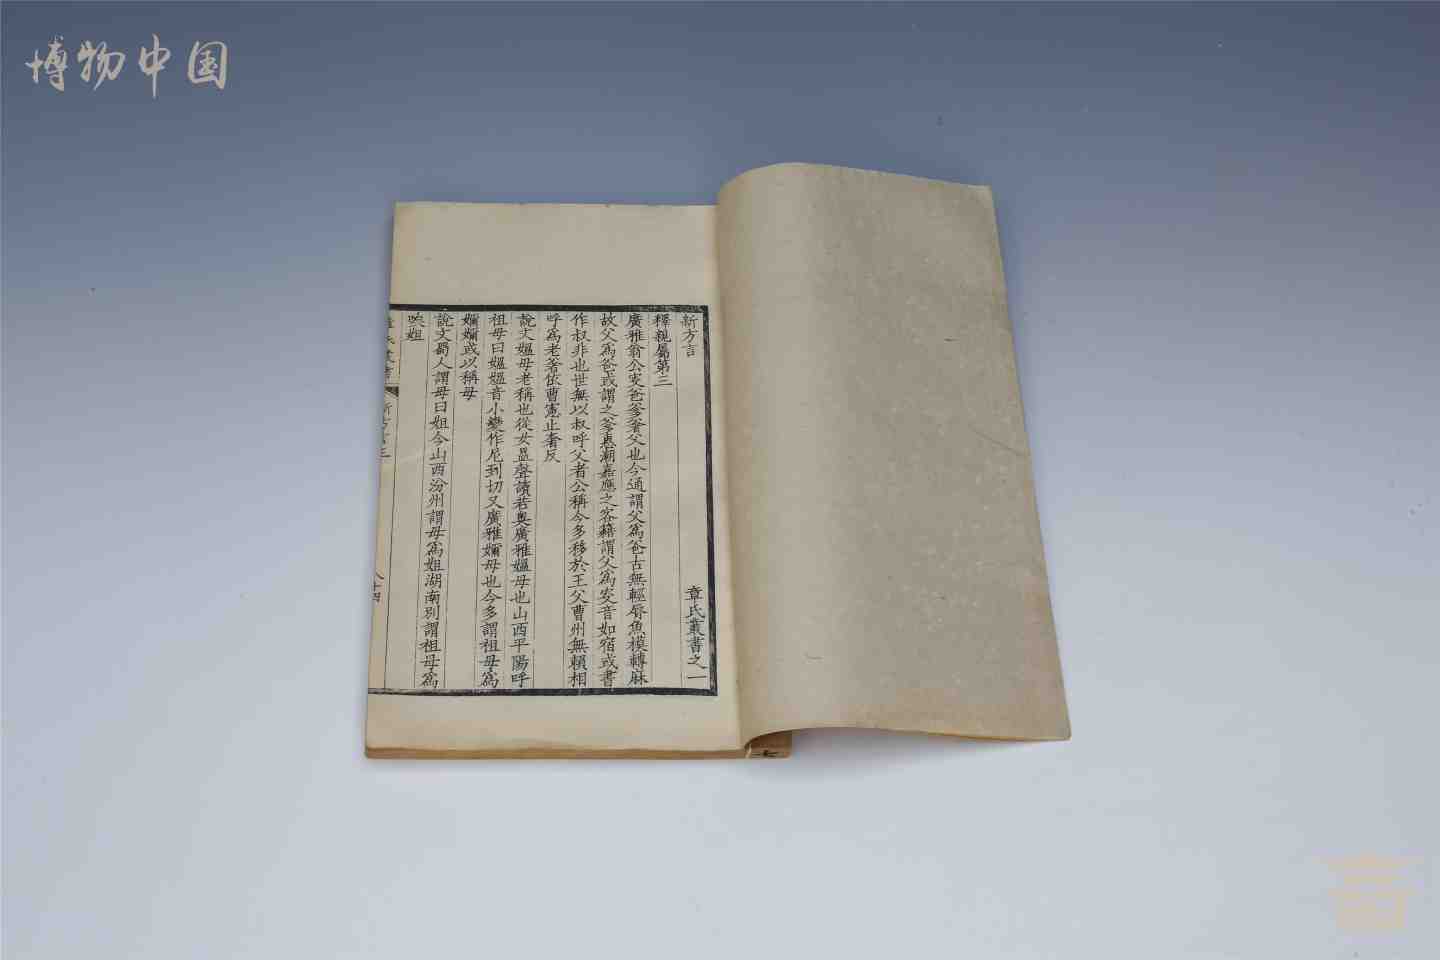 博物中国
新方言
章氏叢書之一
釋親屬第三
廣雅翁公叜爸爹奢父也今通謂父爲爸古無輕脣魚模轉麻
故父爲爸或謂之爹惠潮嘉應之客籍謂父爲叜音如宿或書
作叔非也世無以叔呼父者公稱今多移於王父曹州無賴相
呼爲老奢依曹憲止奢反
說文媼母老稱也從女昷聲讀若奧廣雅媼母也山西平陽呼
祖母曰媼媼音小變作尼到切又廣雅嬭母也今多謂祖母爲
嬭嬭或以稱母
說文蜀人謂母曰姐今山西汾州謂母爲姐湖南別謂祖母爲
唉姐